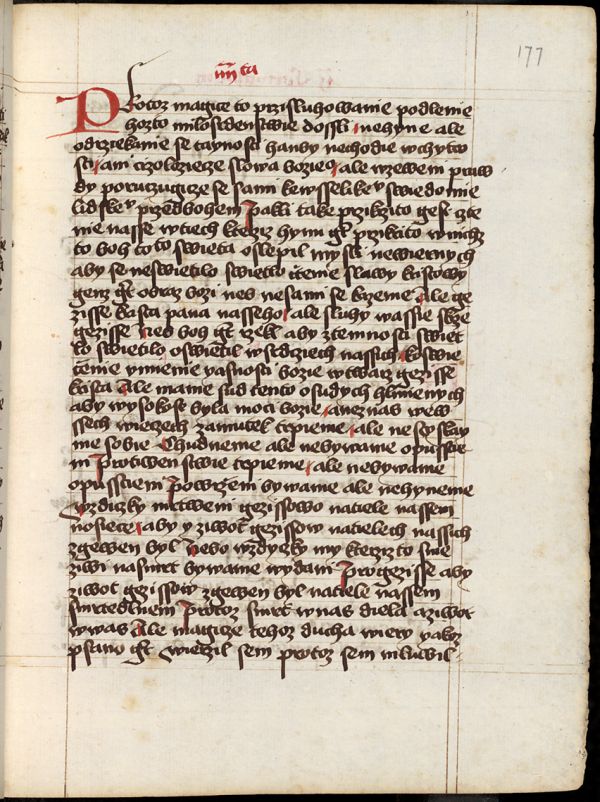 177
iiij ta
PRotoz magice to przisluhowanie podlenie
hozto milosrdenstwie dossli nehyne ale
odrzekanie se taynosti hanby nechodie w chytro
sti ani czoloziecze slowa bozieo ale wzewem praw
dy poruczugicze se sami kewsselikeu swiedomie
lidskeu przed bohem Pakli take przikrito gest czte
nie nasse w tiech kteziz hynu gt przikrito w nichz
to boh tohoto swieta oslepil mysli newiernych
aby se neswietilo swietlo cztenie slawy kristowy
genz gt obraz bozi neb nesami se kazeme Ale ge
zisse krista pana nasseho ale sluhy wassie skrze
gezisse Neb boh gt rzekl aby z temnosti swiet
lo swietilo oswietil w srdziech nassich k oswie
czenie umienie yasnosti bozie w twarz gezisse
krista Ale mame sud tento o sudych hlinienych
aby wysokost byla moci bozie a nez nas wew
ssech wieczech zamutek trpieme ale ne se stay
me sobie Chudneme ale nebywame opusstie
ni Protiwenstwie trpieme ale nebywame
opusstieni Powrzeni bywame ale nehyneme
wzdiczky mrtweni gezissowo na tiele nassem
nosiece aby y ziwot gezissow na tielech nassich
zgewen byl Nebo wzdyczky my kterziz to sme
ziwi na smrt bywame wydani Pro gezisse aby
ziwot gezissow zgewen byl na tiele nassem
smrtedlnem Protoz smrt w nas diela a ziwot
w was Ale magicze tehoz ducha wiery yakoz
psano gt Wierzil sem protoz sem mluwil